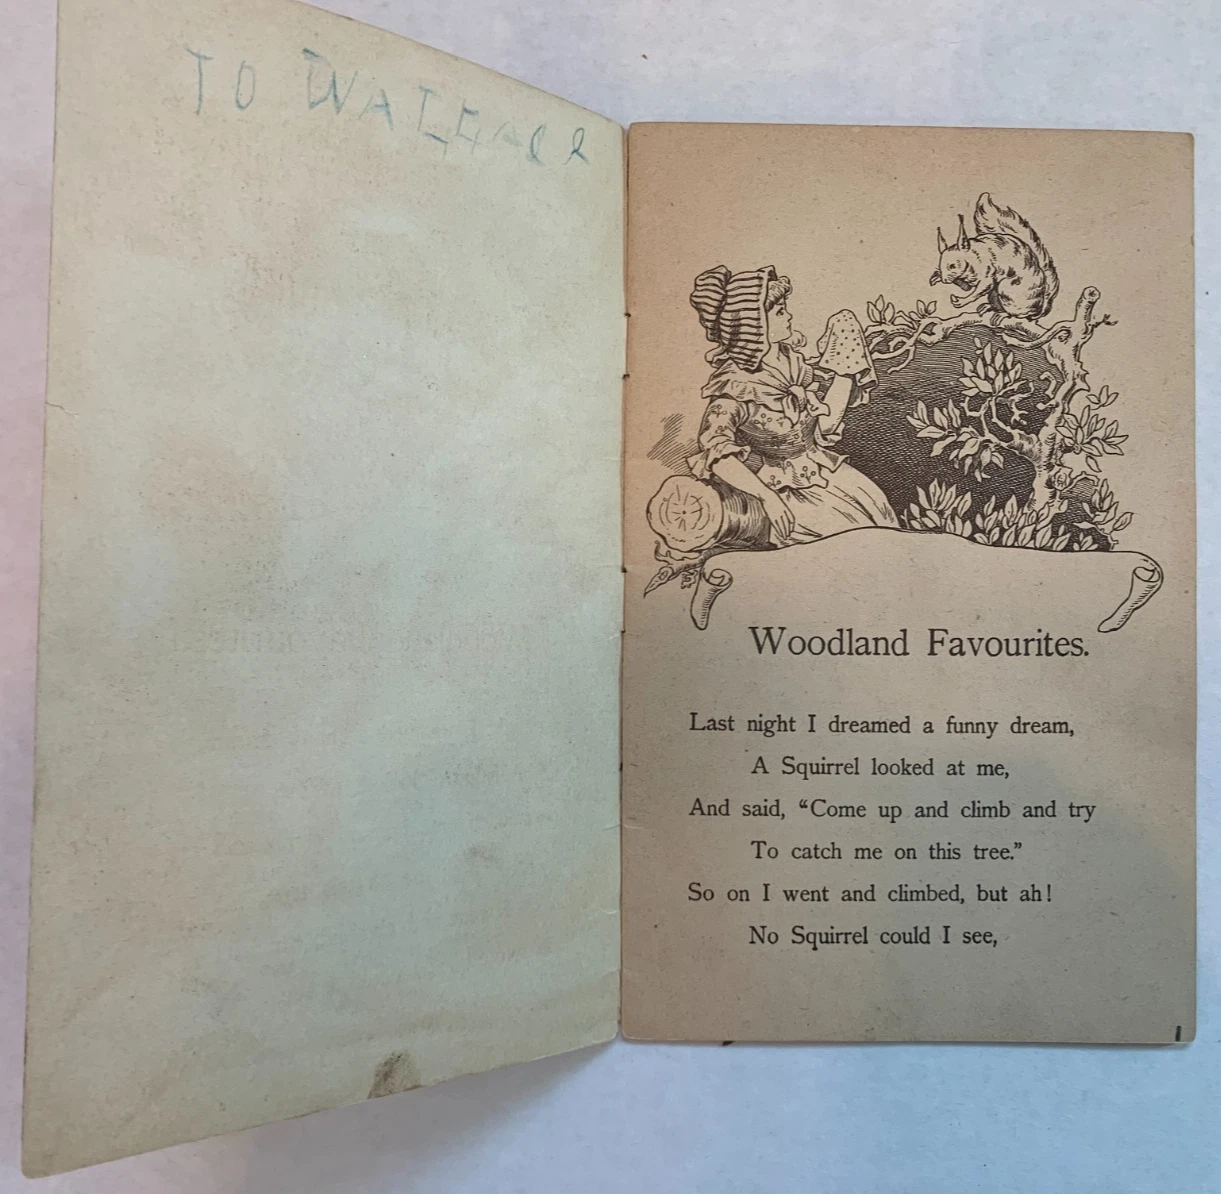 TO
Woodland Favourites.
Last night I dreamed a funny dream,
A Squirrel looked at me,
And said, “Come up and climb and try
To catch me on this tree.”
So on I went and climbed, but ah!
No Squirrel could I see,